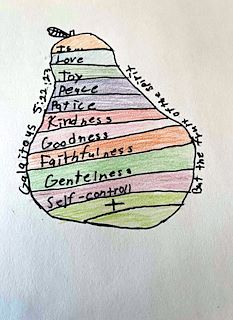 But the fruit of the spirit
Is...
Love
Joy
Peace
Patice
Kindness
Goodness
Faithfulness
Gentelness
Self-controll
Galaitous 5:22,23